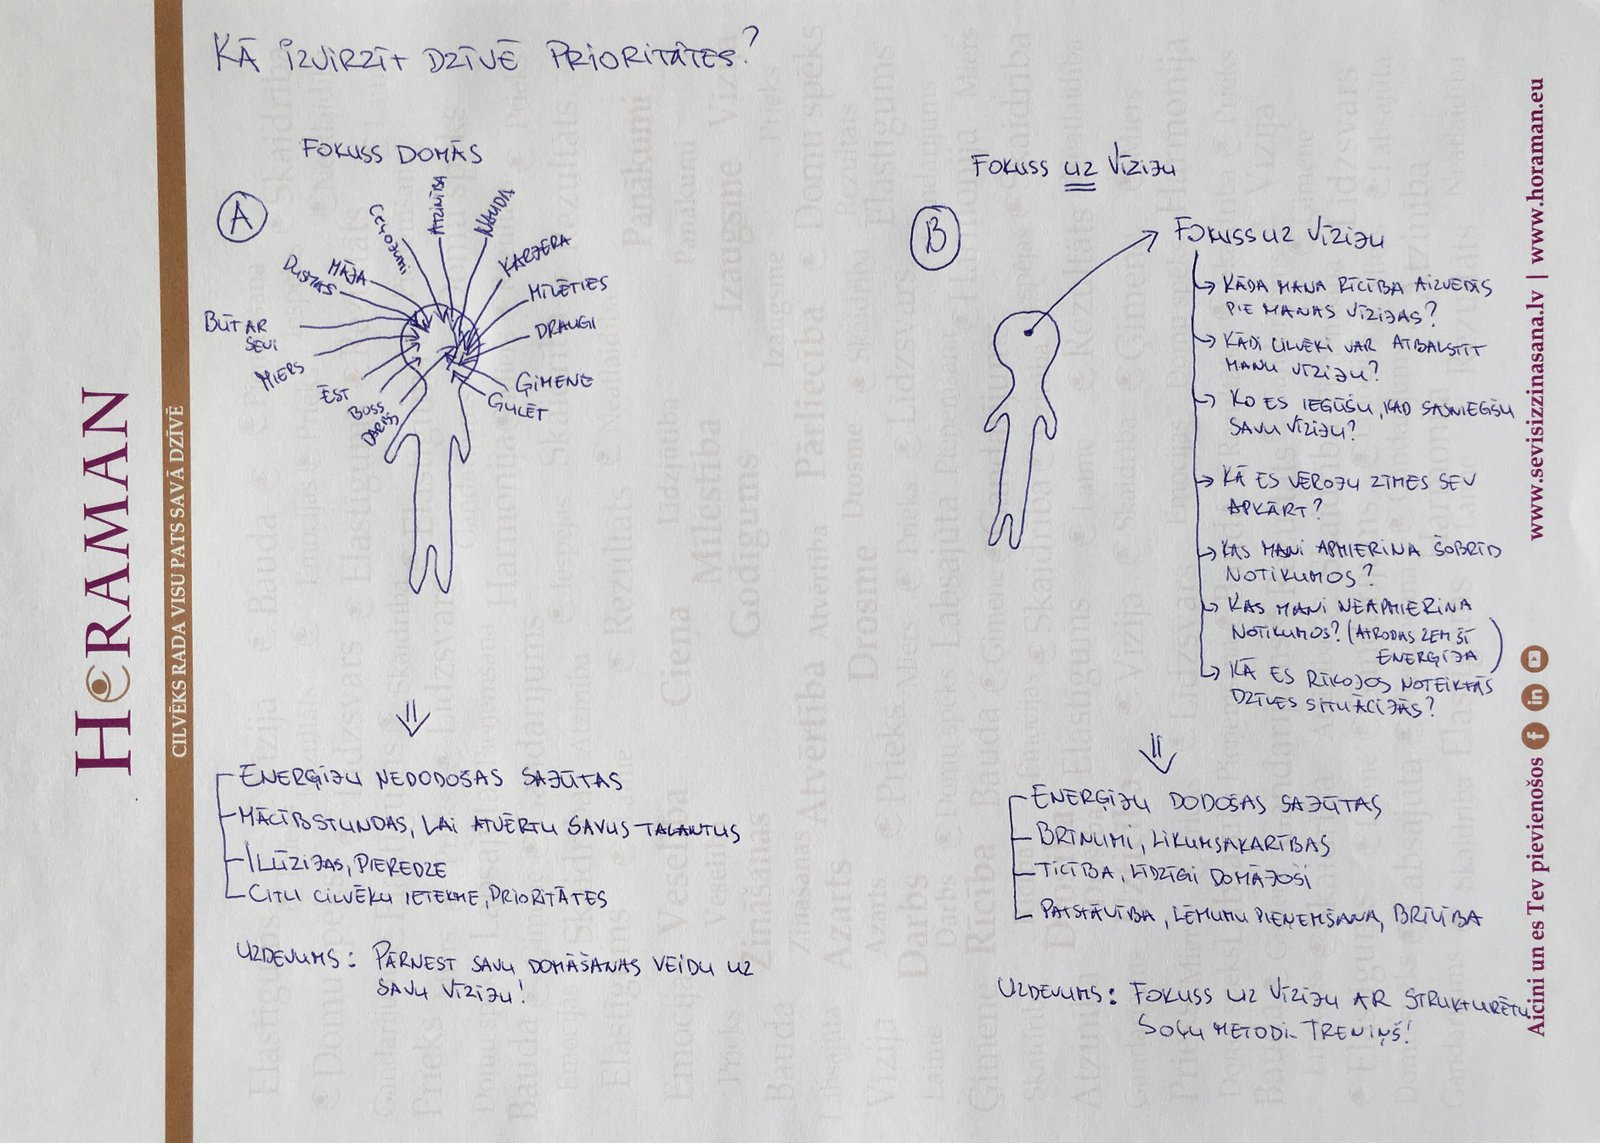 KĀ IZVIRZĪT DZĪVĒ PRIORITĀTES?
FOKUSS DOMĀS
A
BŪT AR
SEVI
DUSMAS
MĀJA
CEĻOJUMI
ATZINĪBA
NAUDA
KARJERA
MĪLĒTIES
DRAUGI
ĢIMENE
GULĒT
MIERS
ĒST
BOSS
DARBS
ENERĢIJU NEDODOŠAS SAJŪTAS
MĀCĪBSTUNDAS, LAI ATVĒRTU SAVUS TALANTUS
ILŪZIJAS, PIEREDZE
CITU CILVĒKU IETEKME, PRIORITĀTES
UZDEVUMS: PĀRNEST SAVU DOMĀŠANAS VEIDU UZ
SAVU VĪZIJU!
FOKUSS UZ VĪZIJU
B
FOKUSS UZ VĪZIJU
KĀDA MANA RĪCĪBA AIZVEDĪS
PIE MANAS VĪZIJAS?
KĀDI CILVĒKI VAR ATBALSTĪT
MANU VĪZIJU?
KO ES IEGŪŠU, KAD SASNIEGŠU
SAVU VĪZIJU?
KĀ ES VĒROJU ZĪMES SEV
APKĀRT?
KAS MANI APMIERINA ŠOBRĪD
NOTIKUMOS?
KAS MANI NEAPMIERINA
NOTIKUMOS? (ATRODAS ZEM ŠĪ
ENERĢIJA)
KĀ ES RĪKOJOS NOTEIKTĀS
DZĪVES SITUĀCIJĀS?
ENERĢIJU DODOŠAS SAJŪTAS
BRĪNUMI, LIKUMSAKARĪBAS
TICĪBA, LĪDZĪGI DOMĀJOŠI
PATSTĀVĪBA, LĒMUMU PIEŅEMŠANA, BRĪVĪBA
UZDEVUMS: FOKUSS UZ VĪZIJU AR STRUKTURĒTU
SOĻU METODI. TRENIŅŠ!
HORAMAN
CILVĒKS RADA VISU PATS SAVĀ DZĪVĒ
Aicini un es Tev pievienošos
www.sevisizzinasana.lv | www.horaman.eu